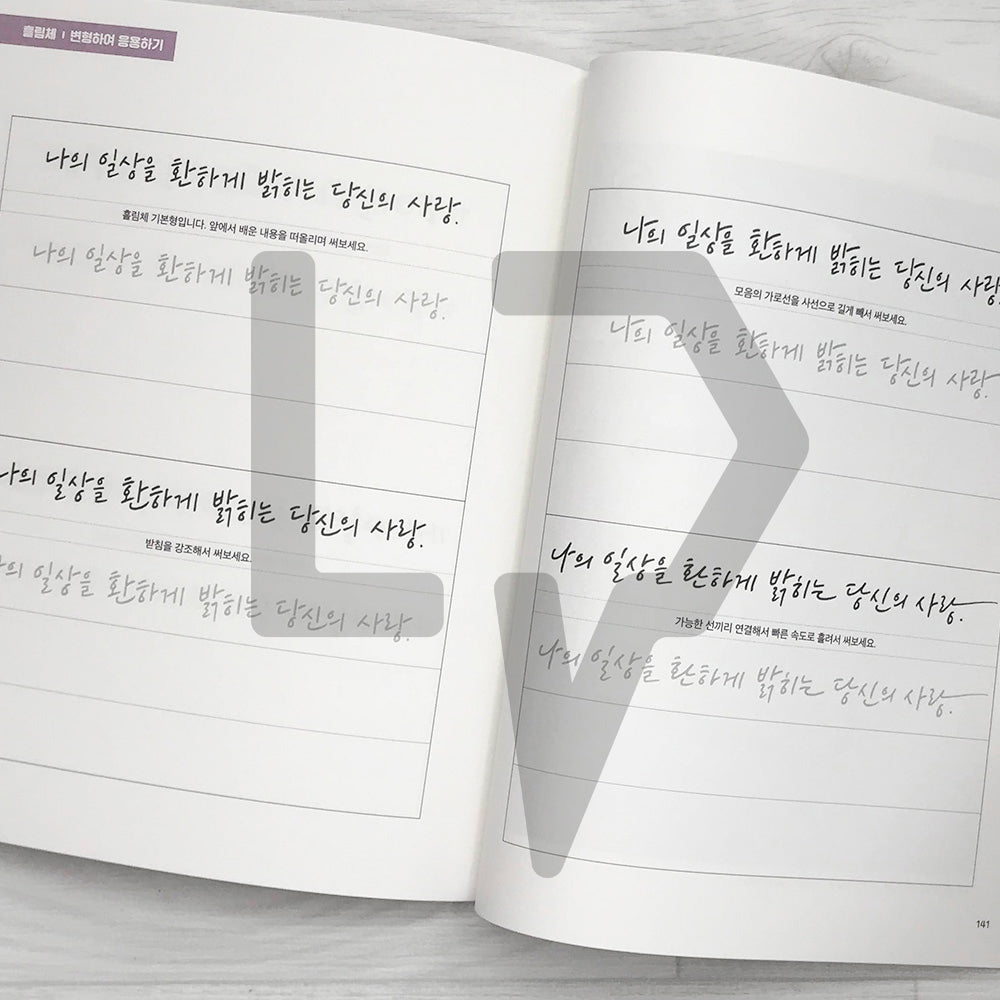 흘림체 | 변형하여 응용하기
나의 일상을 환하게 밝히는 당신의 사랑.
흘림체 기본형입니다. 앞에서 배운 내용을 떠올리며 써보세요.
나의 일상을 환하게 밝히는 당신의 사랑.
나의 일상을 환하게 밝히는 당신의 사랑.
받침을 강조해서 써보세요.
나의 일상을 환하게 밝히는 당신의 사랑.
나의 일상을 환하게 밝히는 당신의 사랑
모음의 가로선을 사선으로 길게 빼서 써보세요.
나의 일상을 환하게 밝히는 당신의 사랑.
나의 일상을 환하게 밝히는 당신의 사랑.
가능한 선끼리 연결해서 빠른 속도로 흘려서 써보세요.
나의 일상을 환하게 밝히는 당신의 사랑.
141